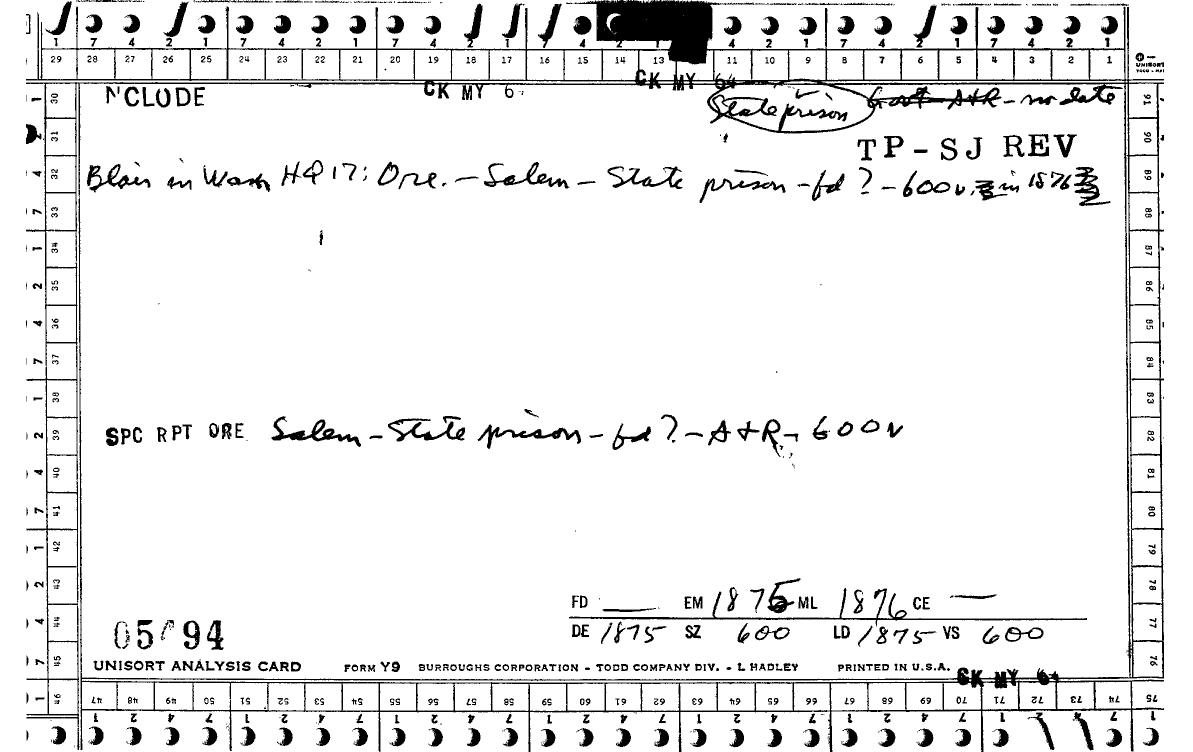 1 7 4 2 1 7 4 2 1 7 4 2 1 7 4 2 1 4 2 1 7 4 2 1 7 4 2 1
29 28 27 26 25 24 23 22 21 20 19 18 17 16 15 14 13 11 10 9 8 7 6 5 4 3 2 1
UNISORT
CK MY 6
CK MY 64
NCLODE
State prison Govt A+R - no date
TP-SJ REV
Blair in Wash HQ 17: Ore. - Salem - State prison - fd ? - 600v. in 1876
SPC RPT ORE Salem - State prison - fd ? - A+R - 600v
FD — EM 1875 ML 1876 CE —
DE 1875 SZ 600 LD 1875 VS 600
05 94
UNISORT ANALYSIS CARD FORM Y9 BURROUGHS CORPORATION - TODD COMPANY DIV. - L HADLEY PRINTED IN U.S.A.
CK MY 64
30 31 32 33 34 35 36 37 38 39 40 41 42 43 44 45 46
1 2 4 7 1 2 4 7 1 2 4 7 1 2 4 7 1
91 90 89 88 87 86 85 84 83 82 81 80 79 78 77 76
47 48 49 50 51 52 53 54 55 56 57 58 59 60 61 62 63 64 65 66 67 68 69 70 71 72 73 74 75
2 4 7 1 2 4 7 1 2 4 7 1 2 4 7 1 2 4 7 1 2 4 7 1